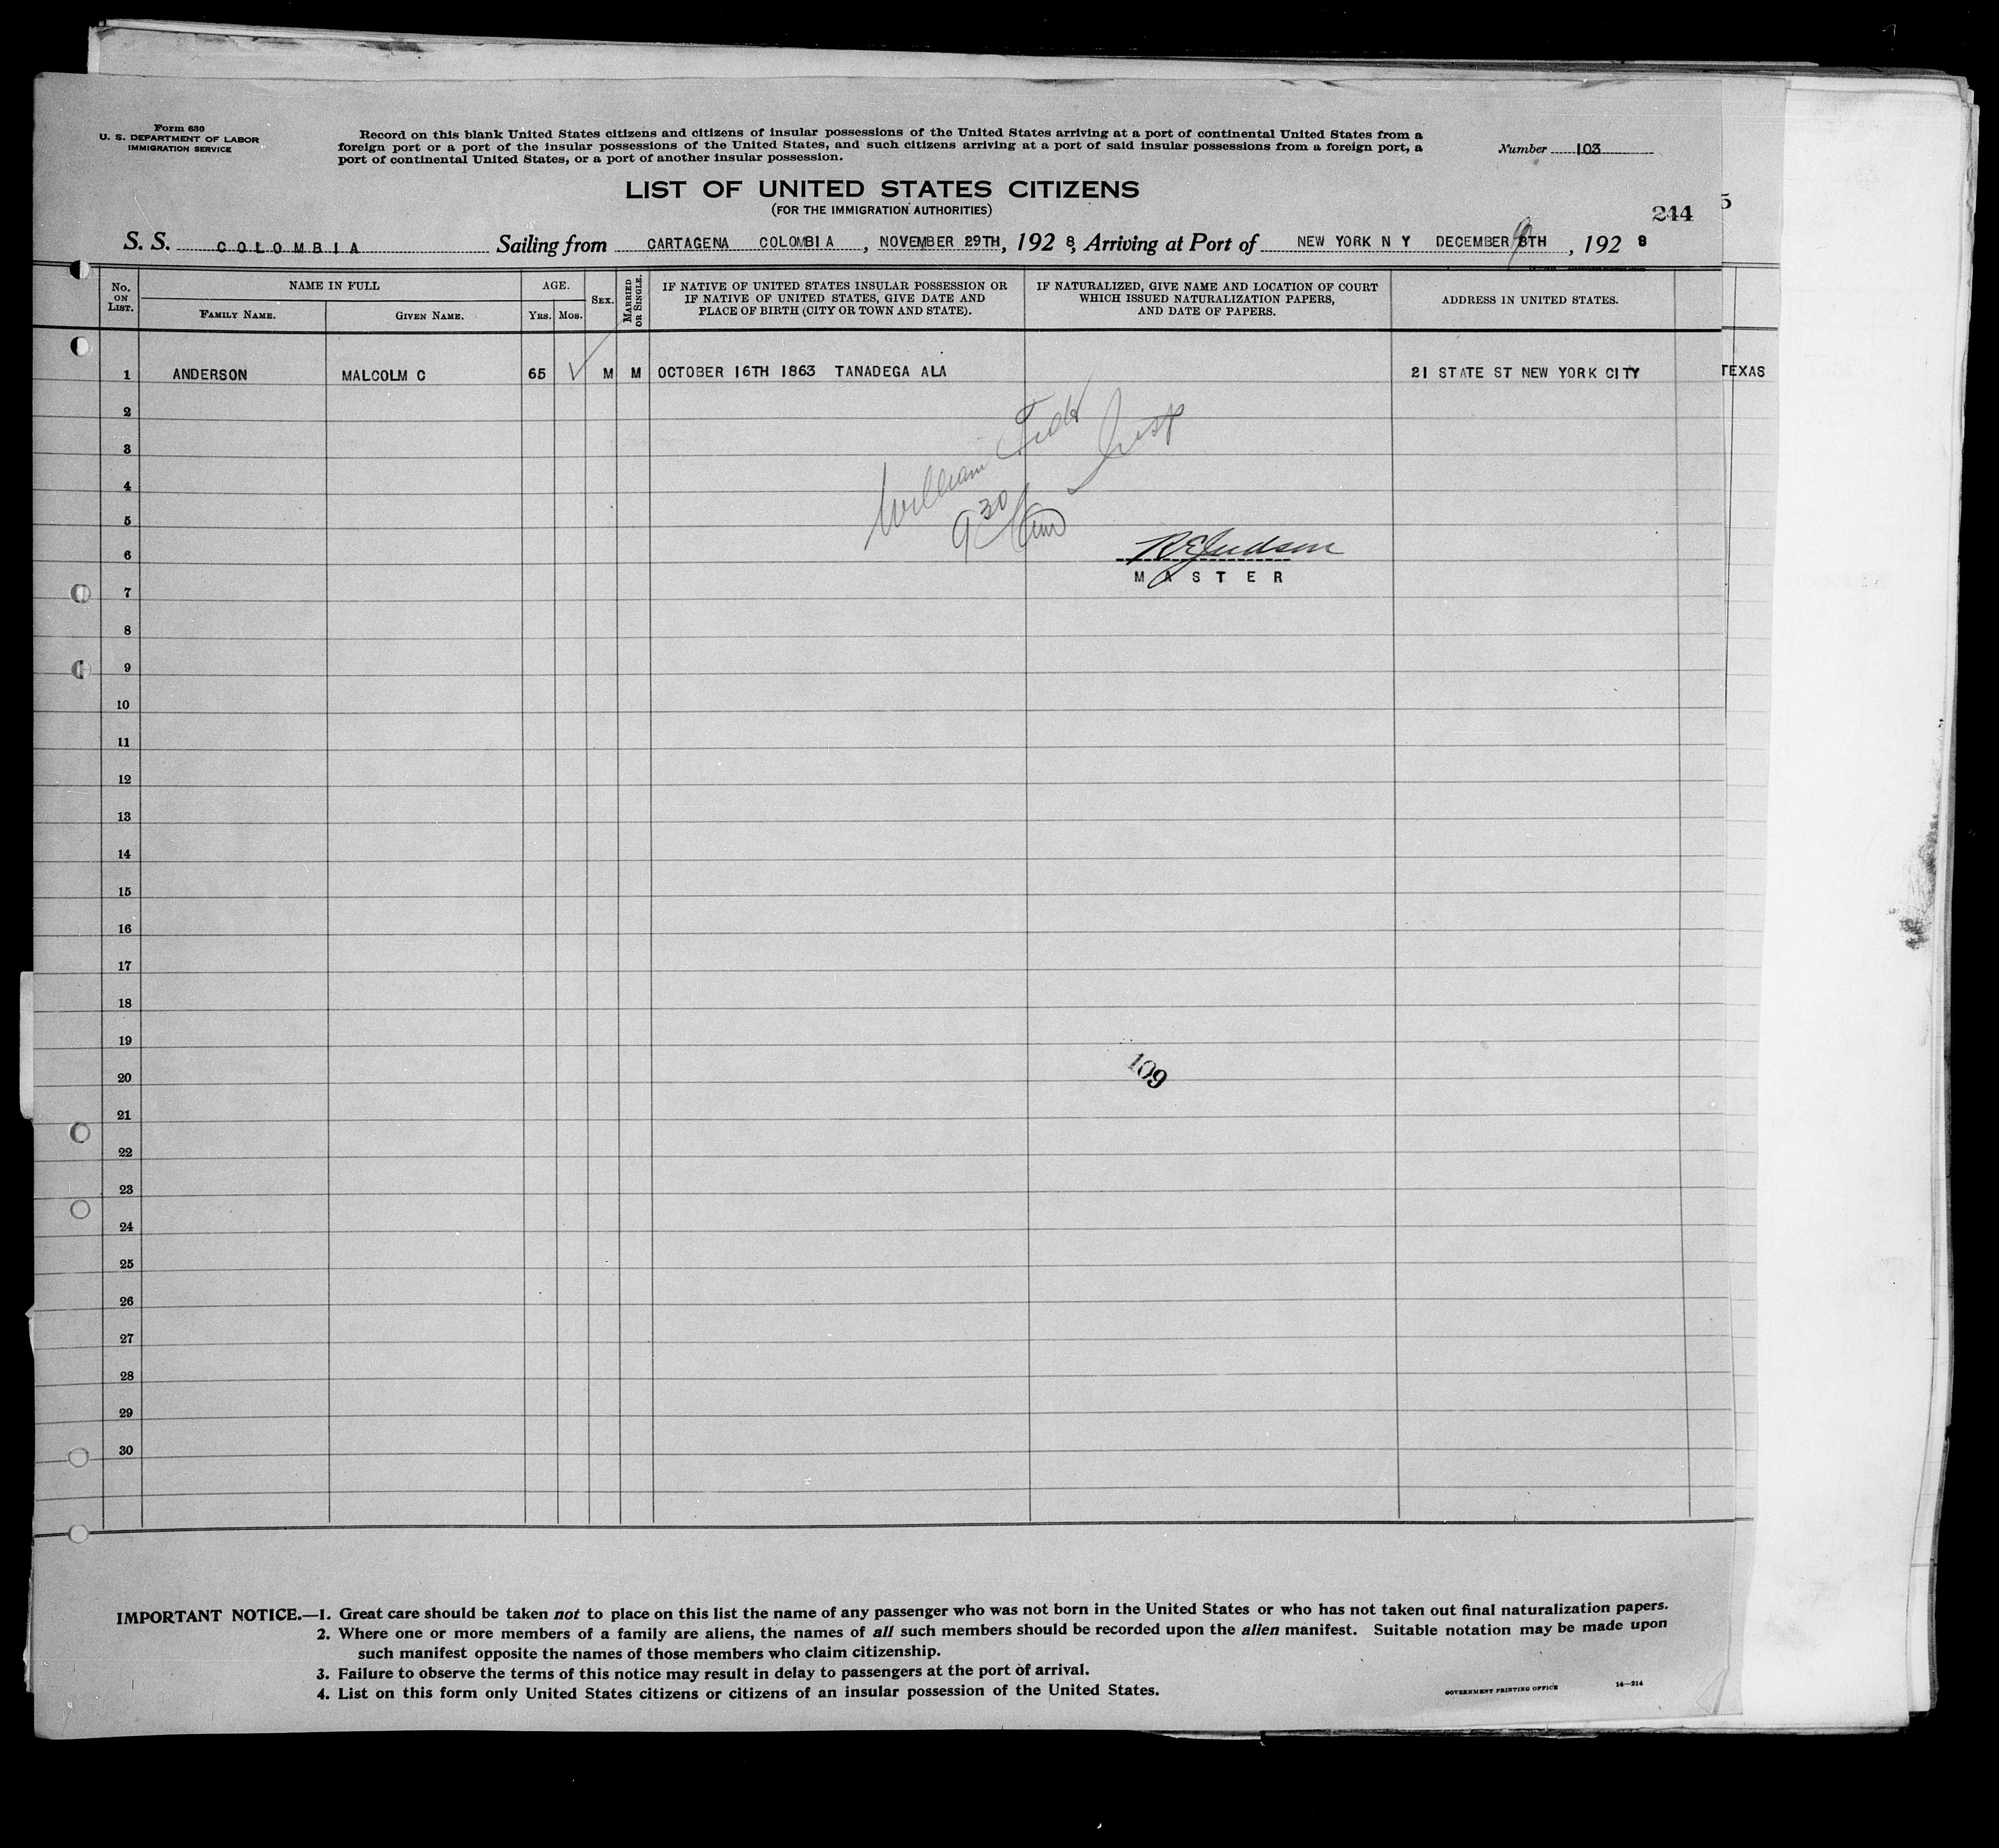 Form 630
U. S. DEPARTMENT OF LABOR
IMMIGRATION SERVICE
Record on this blank United States citizens and citizens of insular possessions of the United States arriving at a port of continental United States from a
foreign port or a port of the insular possessions of the United States, and such citizens arriving at a port of said insular possessions from a foreign port, a
port of continental United States, or a port of another insular possession.
Number 103
LIST OF UNITED STATES CITIZENS
(FOR THE IMMIGRATION AUTHORITIES)
244
5
S. S. COLOMBIA Sailing from CARTAGENA COLOMBIA, NOVEMBER 29TH, 1928, Arriving at Port of NEW YORK N Y DECEMBER 9TH, 1928
No. ON LIST.
NAME IN FULL
FAMILY NAME.
GIVEN NAME.
AGE.
YRS.
MOS.
SEX.
MARRIED OR SINGLE.
IF NATIVE OF UNITED STATES INSULAR POSSESSION OR
IF NATIVE OF UNITED STATES, GIVE DATE AND
PLACE OF BIRTH (CITY OR TOWN AND STATE).
IF NATURALIZED, GIVE NAME AND LOCATION OF COURT
WHICH ISSUED NATURALIZATION PAPERS,
AND DATE OF PAPERS.
ADDRESS IN UNITED STATES.
1 ANDERSON MALCOLM C 65 M M OCTOBER 16TH 1863 TANADEGA ALA 21 STATE ST NEW YORK CITY
TEXAS
2
3
William
4
9 30
5
R E Judson
6
MASTER
7
8
9
10
11
12
13
14
15
16
17
18
19
109
20
21
22
23
24
25
26
27
28
29
30
IMPORTANT NOTICE.—1. Great care should be taken not to place on this list the name of any passenger who was not born in the United States or who has not taken out final naturalization papers.
2. Where one or more members of a family are aliens, the names of all such members should be recorded upon the alien manifest. Suitable notation may be made upon
such manifest opposite the names of those members who claim citizenship.
3. Failure to observe the terms of this notice may result in delay to passengers at the port of arrival.
4. List on this form only United States citizens or citizens of an insular possession of the United States.
GOVERNMENT PRINTING OFFICE 14—214